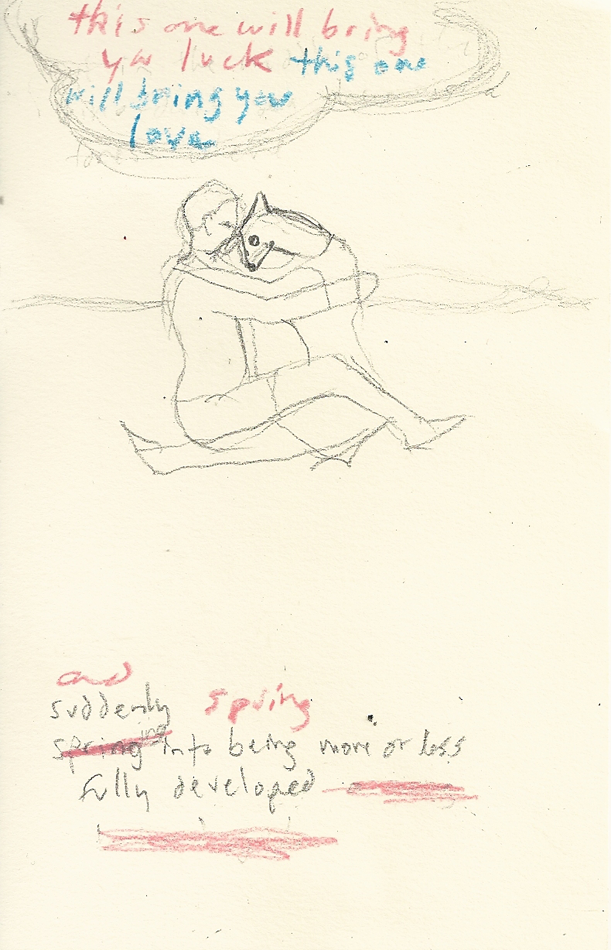 this one will bring
you luck this one
will bring you
love
and
suddenly spring
springing into being more or less
fully developed